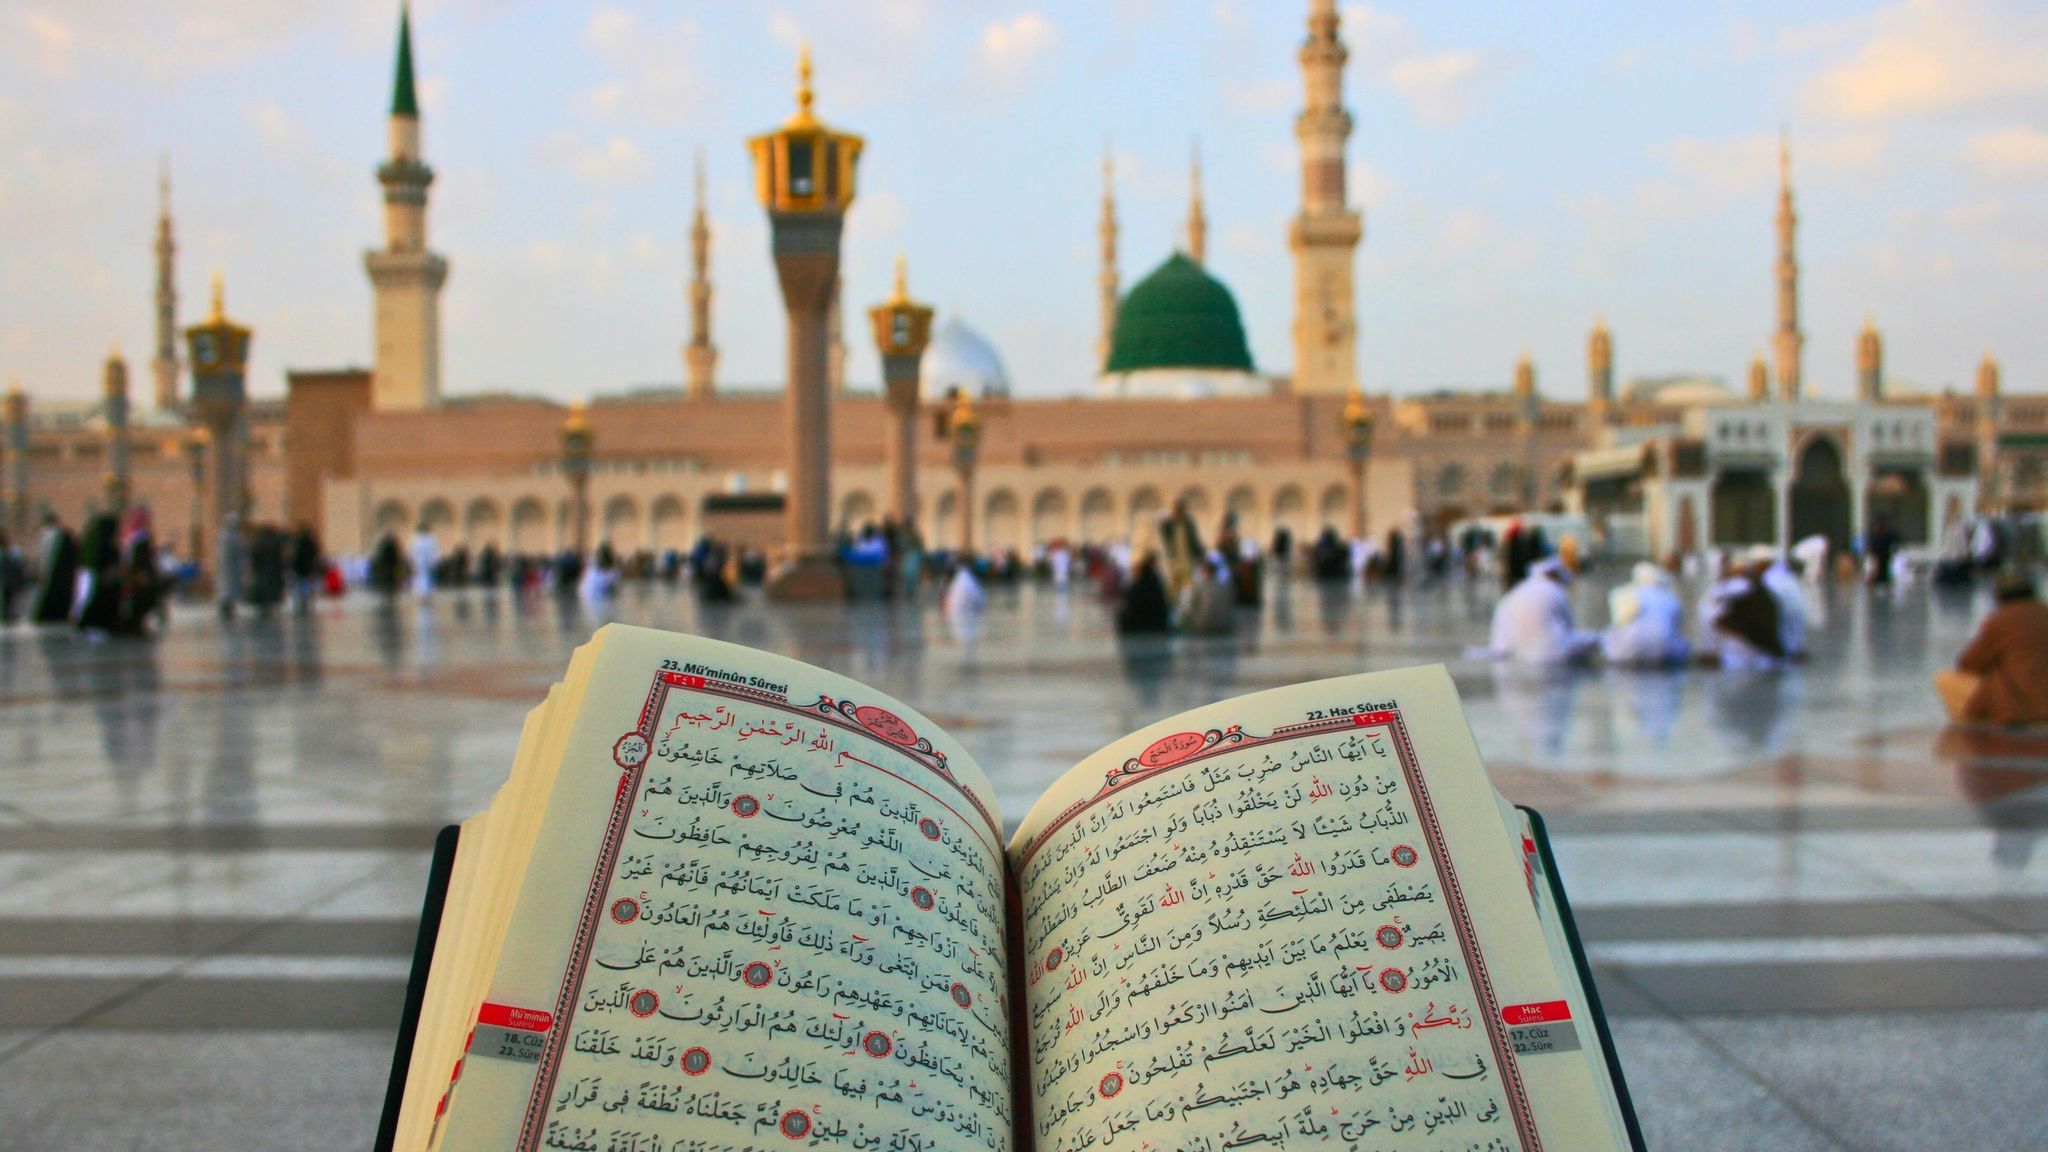 22. Hac Sûresi
٣٤٠
سُورَةُ الْحَجِّ
يَٓا اَيُّهَا النَّاسُ ضُرِبَ مَثَلٌ فَاسْتَمِعُوا لَهُ اِنَّ الَّذ۪ينَ تَدْعُونَ
مِنْ دُونِ اللّٰهِ لَنْ يَخْلُقُوا ذُبَابًا وَلَوِ اجْتَمَعُوا لَهُ وَاِنْ يَسْلُبْهُمُ
الذُّبَابُ شَيْـًٔا لَا يَسْتَنْقِذُوهُ مِنْهُ ضَعُفَ الطَّالِبُ وَالْمَطْلُوبُ
٧٣ مَا قَدَرُوا اللّٰهَ حَقَّ قَدْرِه۪ اِنَّ اللّٰهَ لَقَوِيٌّ عَز۪يزٌ ٧٤ اَللّٰهُ
يَصْطَف۪ي مِنَ الْمَلٰٓئِكَةِ رُسُلًا وَمِنَ النَّاسِ اِنَّ اللّٰهَ سَم۪يعٌ
بَص۪يرٌ ٧٥ يَعْلَمُ مَا بَيْنَ اَيْد۪يهِمْ وَمَا خَلْفَهُمْ وَاِلَى اللّٰهِ تُرْجَعُ
الْاُمُورُ ٧٦ يَٓا اَيُّهَا الَّذ۪ينَ اٰمَنُوا ارْكَعُوا وَاسْجُدُوا وَاعْبُدُوا
رَبَّكُمْ وَافْعَلُوا الْخَيْرَ لَعَلَّكُمْ تُفْلِحُونَ ٧٧ وَجَاهِدُوا
فِي اللّٰهِ حَقَّ جِهَادِه۪ هُوَ اجْتَبٰيكُمْ وَمَا جَعَلَ عَلَيْكُمْ
فِي الدّ۪ينِ مِنْ حَرَجٍ مِلَّةَ اَب۪يكُمْ
Hac
Sûresi
17. Cüz
22. Sûre
23. Mü'minûn Sûresi
٣٤١
اَلْجُزْءُ الثَّامِنُ عَشَرَ
اَلْجُزْءُ
١٨
بِسْمِ اللّٰهِ الرَّحْمٰنِ الرَّح۪يمِ
الْمُؤْمِنُونَ ١ اَلَّذ۪ينَ هُمْ ف۪ي صَلَاتِهِمْ خَاشِعُونَ
هُمْ عَنِ اللَّغْوِ مُعْرِضُونَ ٣ وَالَّذ۪ينَ هُمْ
فَاعِلُونَ ٤ وَالَّذ۪ينَ هُمْ لِفُرُوجِهِمْ حَافِظُونَ
عَلٰٓى اَزْوَاجِهِمْ اَوْ مَا مَلَكَتْ اَيْمَانُهُمْ فَاِنَّهُمْ غَيْرُ
٦ فَمَنِ ابْتَغٰى وَرَٓاءَ ذٰلِكَ فَاُو۬لٰٓئِكَ هُمُ الْعَادُونَ ٧
هُمْ لِاَمَانَاتِهِمْ وَعَهْدِهِمْ رَاعُونَ ٨ وَالَّذ۪ينَ هُمْ عَلٰى
صَلَوَاتِهِمْ يُحَافِظُونَ ٩ اُو۬لٰٓئِكَ هُمُ الْوَارِثُونَ ١٠ اَلَّذ۪ينَ
الْفِرْدَوْسَ هُمْ ف۪يهَا خَالِدُونَ ١١ وَلَقَدْ خَلَقْنَا
سُلَالَةٍ مِنْ ط۪ينٍ ١٢ ثُمَّ جَعَلْنَاهُ نُطْفَةً ف۪ي قَرَارٍ
الْعَلَقَةَ مُضْغَةً
Mü'minûn
Sûresi
18. Cüz
23. Sûre